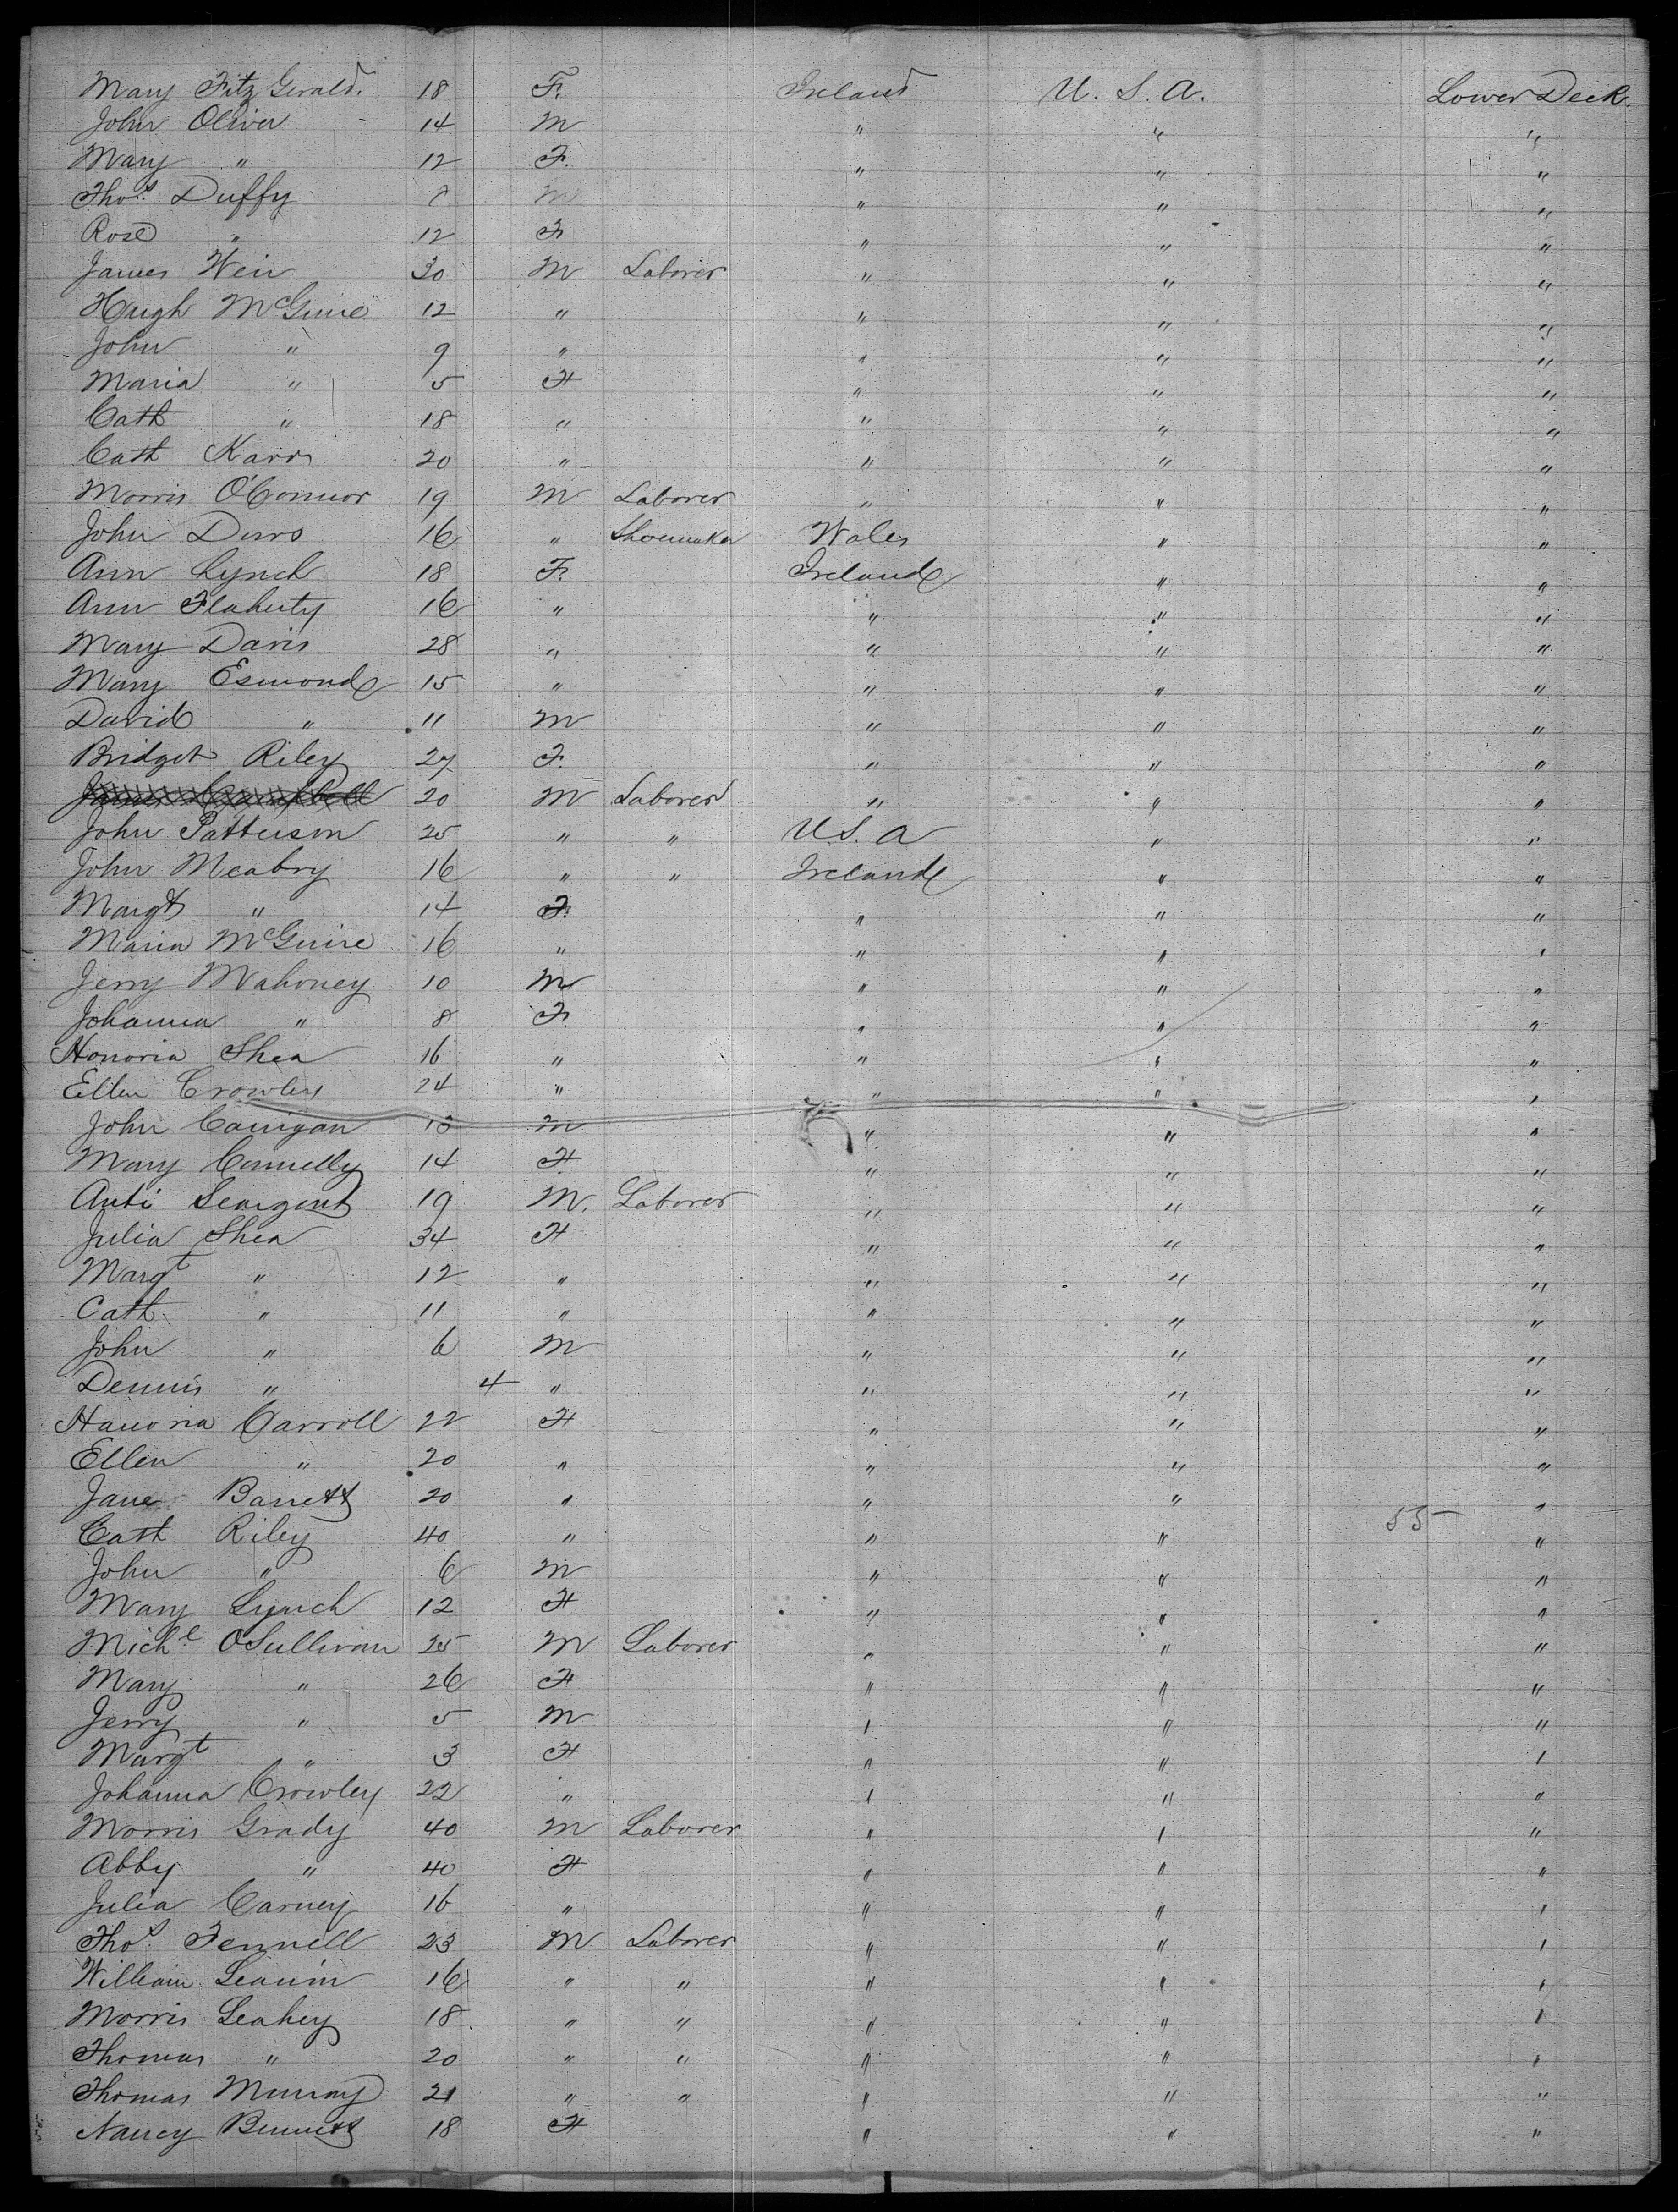 Mary FitzGerald. 18 F. Ireland U. S. A. Lower Deck.
John Oliver 14 M " " "
Mary " 12 F. " " "
Thos. Duffy M " " "
Rose " 12 F " " "
James Weir 30 M Laborer " " "
Hugh McGuire 12 " " " "
John " 9 " " " "
Maria " 5 F " " "
Cath " 18 " " " "
Cath Karr 20 " " " "
Morris O'Connor 19 M Laborer " " "
John 16 " Shoemaker Wales " "
Ann Lynch 18 F. Ireland " "
Ann Flaherty 16 " " " "
Mary Davis 28 " " " "
Mary Esmond 15 " " " "
David " 11 M " " "
Bridget Riley 27 F. " " "
James Campbell 20 M Laborer " " "
John Patterson 25 " " U.S.A " "
John Meabry 16 " " Ireland " "
Margt " 14 F. " " "
Maria McGuire 16 " " " "
Jerry Mahoney 10 M " " "
Johanna " 8 F. " " "
Honoria Shea 16 " " " "
Ellen Crowley 24 " " " "
John Carrigan M " " "
Mary Connelly 14 F " " "
Anti Seargent 19 M. Laborer " " "
Julia Shea 34 F " " "
Margt " 12 " " " "
Cath " 11 " " " "
John " 6 M " " "
Dennis " 4 " " " "
Hanoria Carroll 22 F " " "
Ellen " 20 " " " "
Jane Barrett 20 " " " "
Cath Riley 40 " " " 55 "
John " 6 M " " "
Mary Lynch 12 F " " "
Michl. OSullivan 25 M Laborer " " "
Mary " 26 F " " "
Jerry " 5 M " " "
Margt " 3 F " " "
Johanna Crowley 22 " " " "
Morris Grady 40 M Laborer " " "
Abby " 40 F " " "
Julia Carney 16 " " " "
Thos. Fennell 23 M Laborer " " "
William 16 " " " " "
Morris Leahey 18 " " " " "
Thomas " 20 " " " " "
Thomas Murray 21 " " " " "
Nancy Bennett 18 F " "